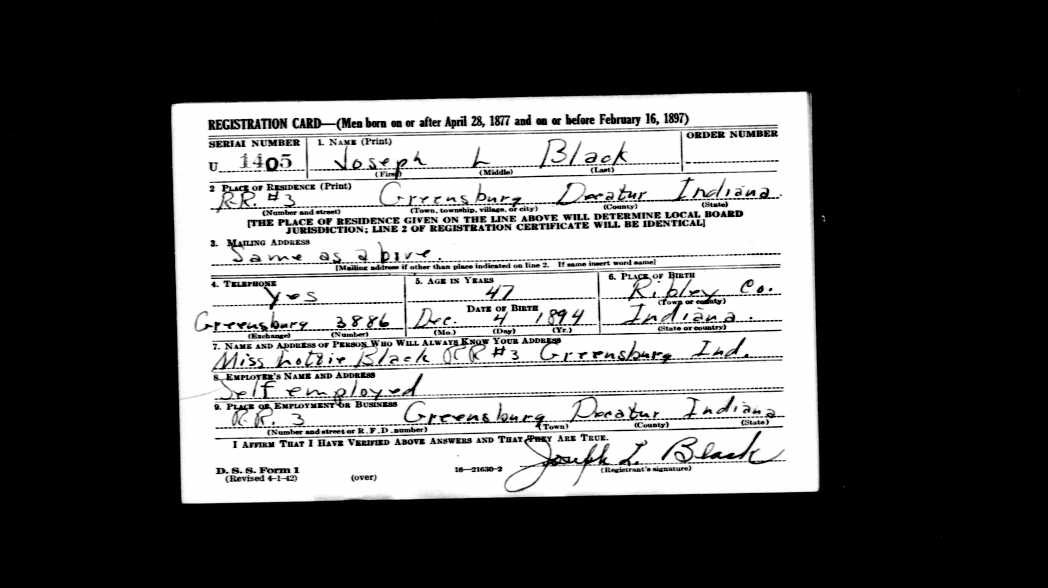 REGISTRATION CARD—(Men born on or after April 28, 1877 and on or before February 16, 1897)
SERIAL NUMBER 1. NAME (Print) ORDER NUMBER
U 1405 Joseph L Black
(First) (Middle) (Last)
2 PLACE OF RESIDENCE (Print)
RR. #3 Greensburg Decatur Indiana.
(Number and street) (Town, township, village, or city) (County) (State)
[THE PLACE OF RESIDENCE GIVEN ON THE LINE ABOVE WILL DETERMINE LOCAL BOARD
JURISDICTION; LINE 2 OF REGISTRATION CERTIFICATE WILL BE IDENTICAL]
3. MAILING ADDRESS
Same as above.
[Mailing address if other than place indicated on line 2. If same insert word same]
4. TELEPHONE 5. AGE IN YEARS 6. PLACE OF BIRTH
Yes 47 Ripley Co.
DATE OF BIRTH (Town or county)
Greensburg 3886 Dec. 4 1894 Indiana.
(Exchange) (Number) (Mo.) (Day) (Yr.) (State or country)
7. NAME AND ADDRESS OF PERSON WHO WILL ALWAYS KNOW YOUR ADDRESS
Miss Lottie Black RR #3 Greensburg Ind.
8. EMPLOYER'S NAME AND ADDRESS
Self employed
9. PLACE OF EMPLOYMENT OR BUSINESS
R.R. 3 Greensburg Decatur Indiana
(Number and street or R. F. D. number) (Town) (County) (State)
I AFFIRM THAT I HAVE VERIFIED ABOVE ANSWERS AND THAT THEY ARE TRUE.
Joseph L. Black
D. S. S. Form 1 16—21630-2 (Registrant's signature)
(Revised 4-1-42) (over)